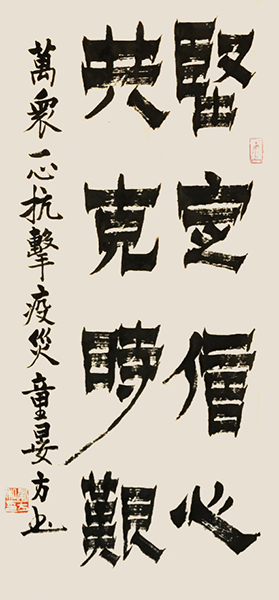 堅定信心
共克時艱
萬眾一心抗擊疫災童晏方書